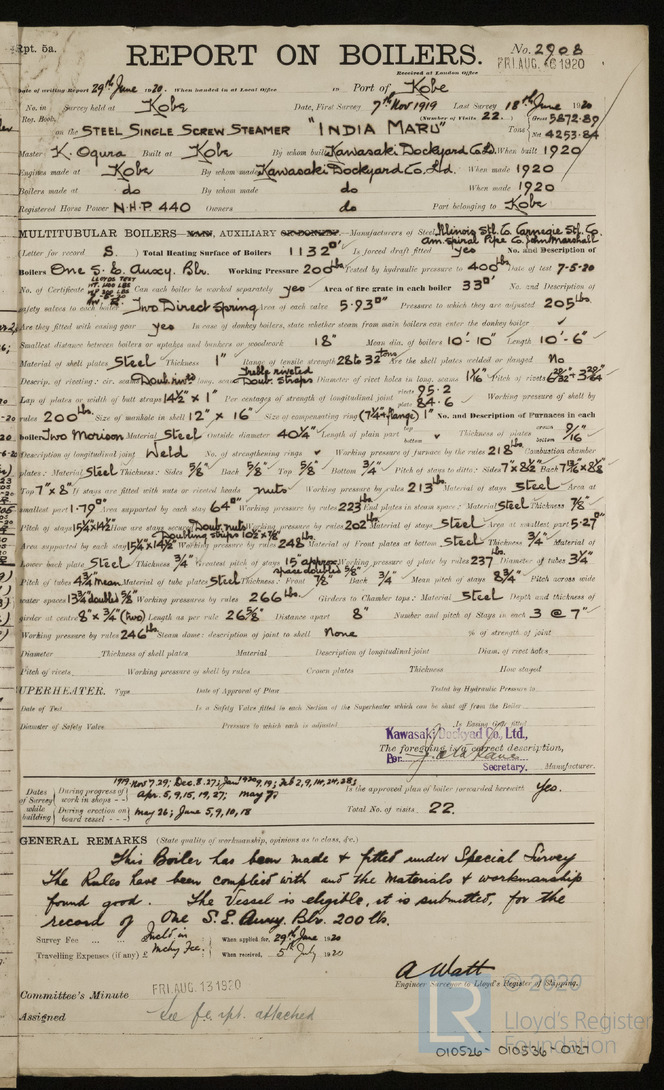 Rpt. 5a.
REPORT ON BOILERS.
No. 2908
Received at London Office
FRI. AUG. 6 1920
Date of writing Report 29th June 1920. When handed in at Local Office 19 Port of Kobe
No. in Reg. Book. Survey held at Kobe Date, First Survey 7th Nov 1919 Last Survey 18th June 1920
(Number of Visits 22.)
on the STEEL SINGLE SCREW STEAMER "INDIA MARU" Tons Gross 5872.89 Net 4253.84
Master K. Ogura Built at Kobe By whom built Kawasaki Dockyard Co. Ld. When built 1920
Engines made at Kobe By whom made Kawasaki Dockyard Co. Ltd. When made 1920
Boilers made at do By whom made do When made 1920
Registered Horse Power N.H.P. 440 Owners do Port belonging to Kobe
MULTITUBULAR BOILERS MAIN, AUXILIARY OR DONKEY. Manufacturers of Steel Illinois Stl. Co. Carnegie Stl. Co. Am. Spiral Pipe Co. John Marshall
(Letter for record S.) Total Heating Surface of Boilers 1132□' Is forced draft fitted yes No. and Description of
Boilers One S.E. Auxy. Blr. Working Pressure 200lbs Tested by hydraulic pressure to 400lbs Date of test 7-5-20
No. of Certificate LLOYDS TEST Can each boiler be worked separately yes Area of fire grate in each boiler 33□' No. and Description of
safety valves to each boiler Two Direct Spring Area of each valve 5.93□" Pressure to which they are adjusted 205lbs.
Are they fitted with easing gear yes In case of donkey boilers, state whether steam from main boilers can enter the donkey boiler ✓
Smallest distance between boilers or uptakes and bunkers or woodwork 18" Mean dia. of boilers 10'-10" Length 10'-6"
Material of shell plates Steel Thickness 1" Range of tensile strength 28 to 32 tons Are the shell plates welded or flanged No
Descrip. of riveting: cir. seams Doub. rivtd. long. seams Treble riveted Doub. Straps Diameter of rivet holes in long. seams 1 1/16" Pitch of rivets
Lap of plates or width of butt straps 14 1/2" x 1" Per centages of strength of longitudinal joint rivets 95.2 plate 84.6 Working pressure of shell by
rules 200lbs. Size of manhole in shell 12" x 16" Size of compensating ring (7 1/4" flange) 1" No. and Description of Furnaces in each
boiler Two Morison Material Steel Outside diameter 40 1/4" Length of plain part top bottom ✓ Thickness of plates crown bottom 9/16"
Description of longitudinal joint Weld No. of strengthening rings ✓ Working pressure of furnace by the rules 218lbs. Combustion chamber
plates: Material Steel Thickness: Sides 5/8" Back 5/8" Top 5/8" Bottom 3/4" Pitch of stays to ditto: Sides 7" x 8 1/2" Back
Top 7" x 8" If stays are fitted with nuts or riveted heads nuts Working pressure by rules 213lbs. Material of stays Steel Area at
smallest part 1.79□" Area supported by each stay 64□" Working pressure by rules 223lbs. End plates in steam space: Material Steel Thickness 7/8"
Pitch of stays 15 1/4" x 14 1/2" How are stays secured Doub. nuts Working pressure by rules 202lbs. Material of stays Steel Area at smallest part 5.27□"
Doubling strips 10 1/2" x 7/8"
Area supported by each stay 15 1/4" x 14 1/2" Working pressure by rules 248lbs. Material of Front plates at bottom Steel Thickness 3/4" Material of
Lower back plate Steel Thickness 3/4" Greatest pitch of stays 15" approx. space doubled 5/8" Working pressure of plate by rules 237lbs. Diameter of tubes 3 1/4"
Pitch of tubes 4 3/4" mean Material of tube plates Steel Thickness: Front 7/8" Back 3/4" Mean pitch of stays 8 3/4" Pitch across wide
water spaces 13 3/4" doubled 5/8" Working pressures by rules 266lbs. Girders to Chamber tops: Material Steel Depth and thickness of
girder at centre 8" x 3/4" (two) Length as per rule 26 5/8" Distance apart 8" Number and pitch of Stays in each 3 @ 7"
Working pressure by rules 246lbs Steam dome: description of joint to shell None % of strength of joint
Diameter Thickness of shell plates Material Description of longitudinal joint Diam. of rivet holes
Pitch of rivets Working pressure of shell by rules Crown plates Thickness How stayed
UPERHEATER. Type Date of Approval of Plan Tested by Hydraulic Pressure to
Date of Test Is a Safety Valve fitted to each Section of the Superheater which can be shut off from the Boiler
Diameter of Safety Valve Pressure to which each is adjusted Is Easing Gear fitted
Kawasaki Dockyard Co., Ltd.,
The foregoing is a correct description,
Per. Secretary. Manufacturer.
Dates of Survey while building During progress of work in shops - - 1919. Nov 7.29; Dec. 8.27; Jan 1920 9,19; Feb 2,9,14,24,28; Apr. 5,9,15,19,27; May 7;
During erection on board vessel - - - May 26; June 5,9,10,18
Is the approved plan of boiler forwarded herewith Yes.
Total No. of visits 22.
GENERAL REMARKS (State quality of workmanship, opinions as to class, &c.)
This Boiler has been made & fitted under Special Survey
The Rules have been complied with and the materials & workmanship
found good. The Vessel is eligible, it is submitted, for the
record of One S.E. Auxy. Blr. 200 lb.
Survey Fee ... ... Incld in Mchy Fee. When applied for, 29th June 1920
Travelling Expenses (if any) £ When received, 5th July 1920
A Watt
Engineer Surveyor to Lloyd's Register of Shipping.
Committee's Minute FRI. AUG. 13 1920
Assigned See f.e. rpt. attached
© 2020
LR
Lloyd's Register
Foundation
010526-010536-0127